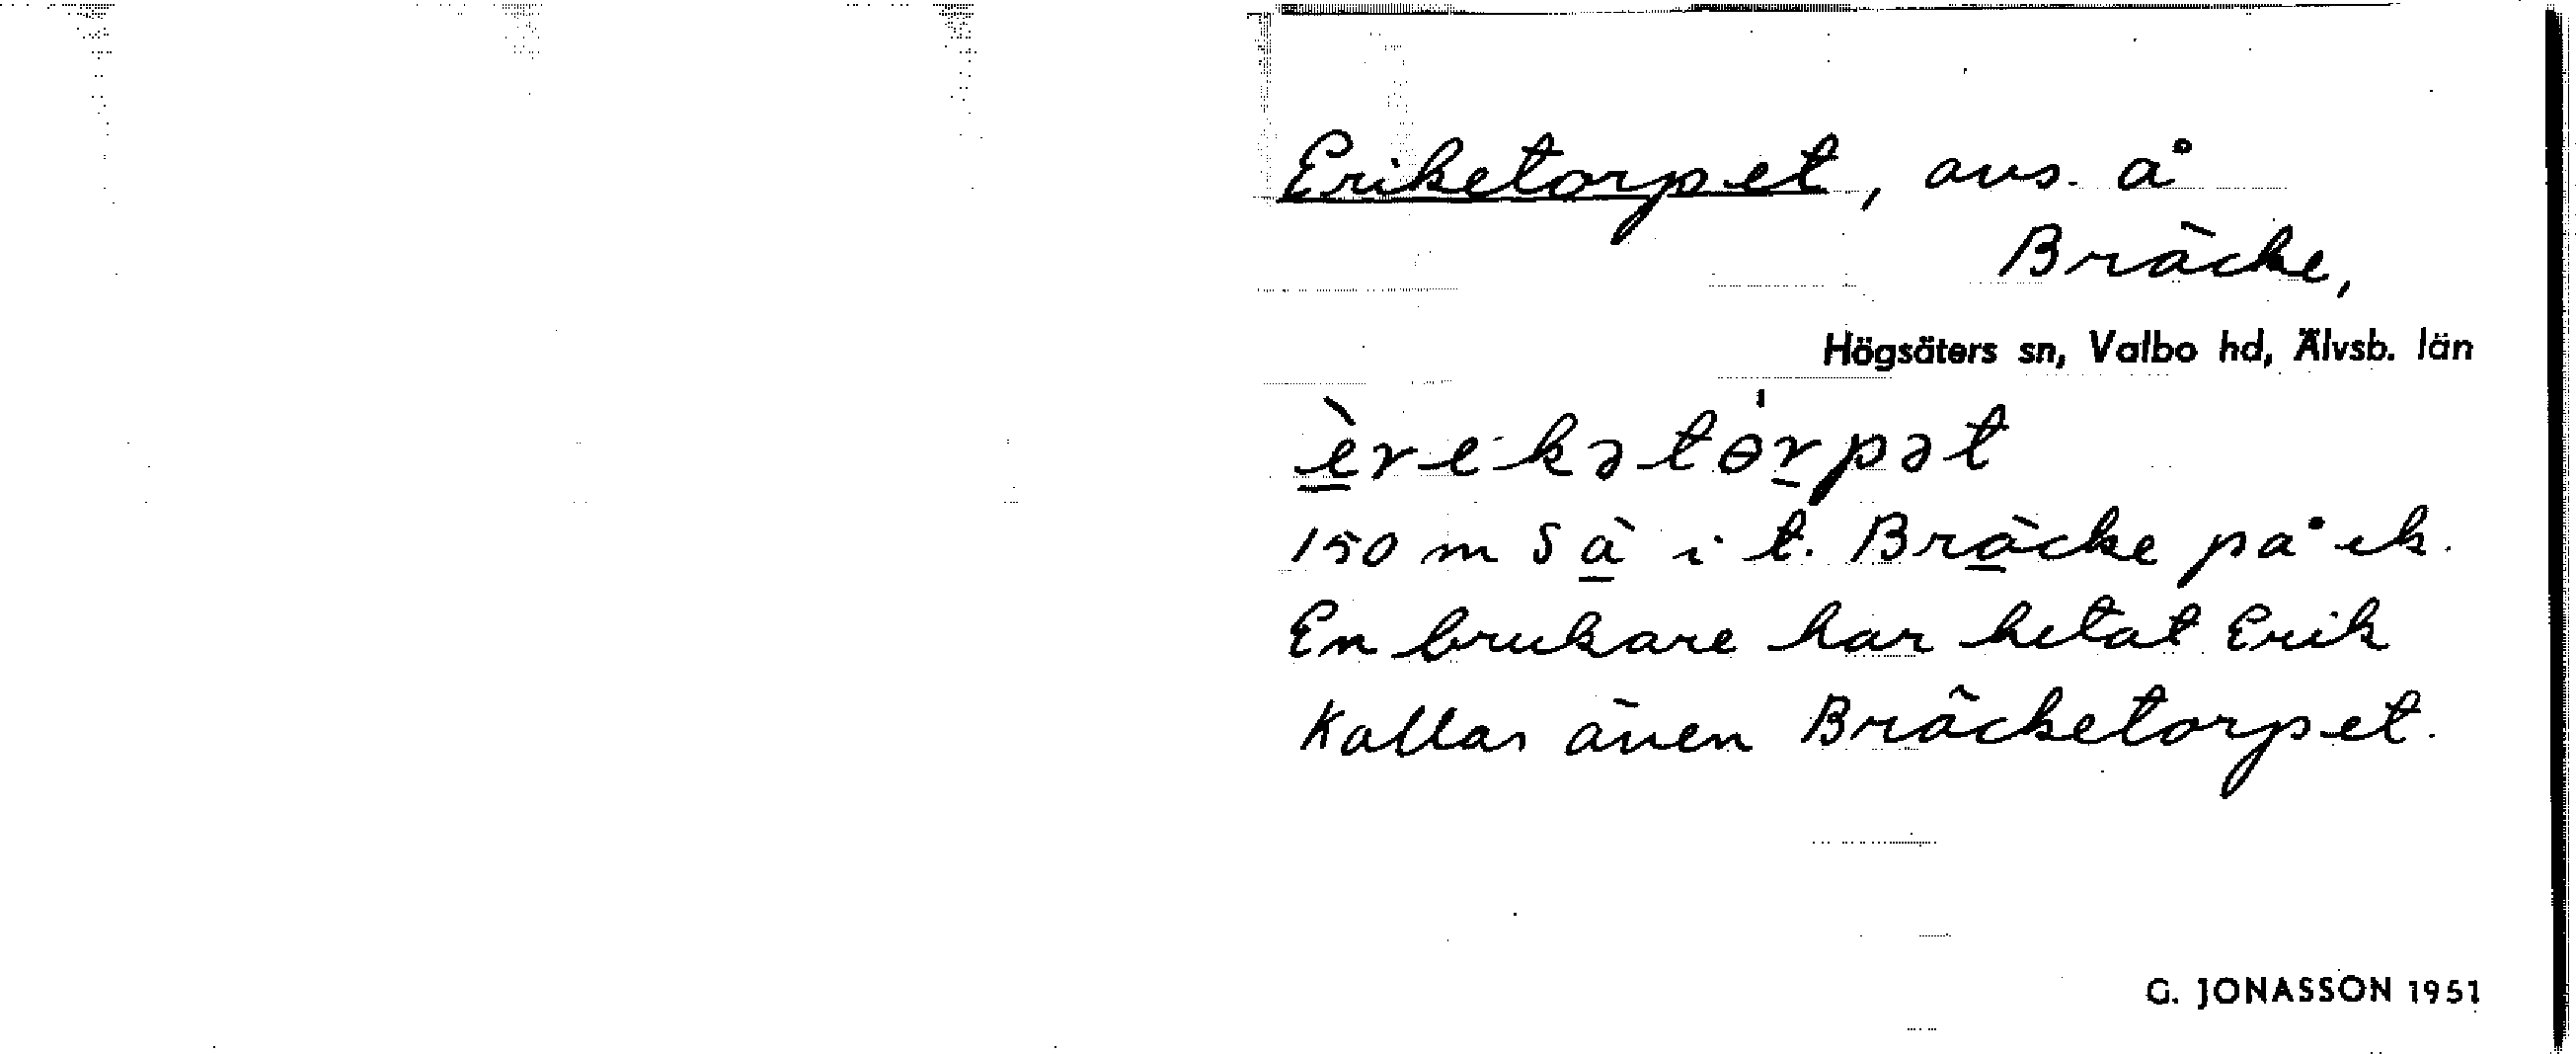 Eriketorpet, avs. å
Bräcke,
Högsäters sn, Valbo hd, Älvsb. län
èrekətɵ̀rpət
150 m S ä i t. Bräcke på ek.
En brukare har hetat Erik
Kallas även Bräcketorpet.
G. JONASSON 1951